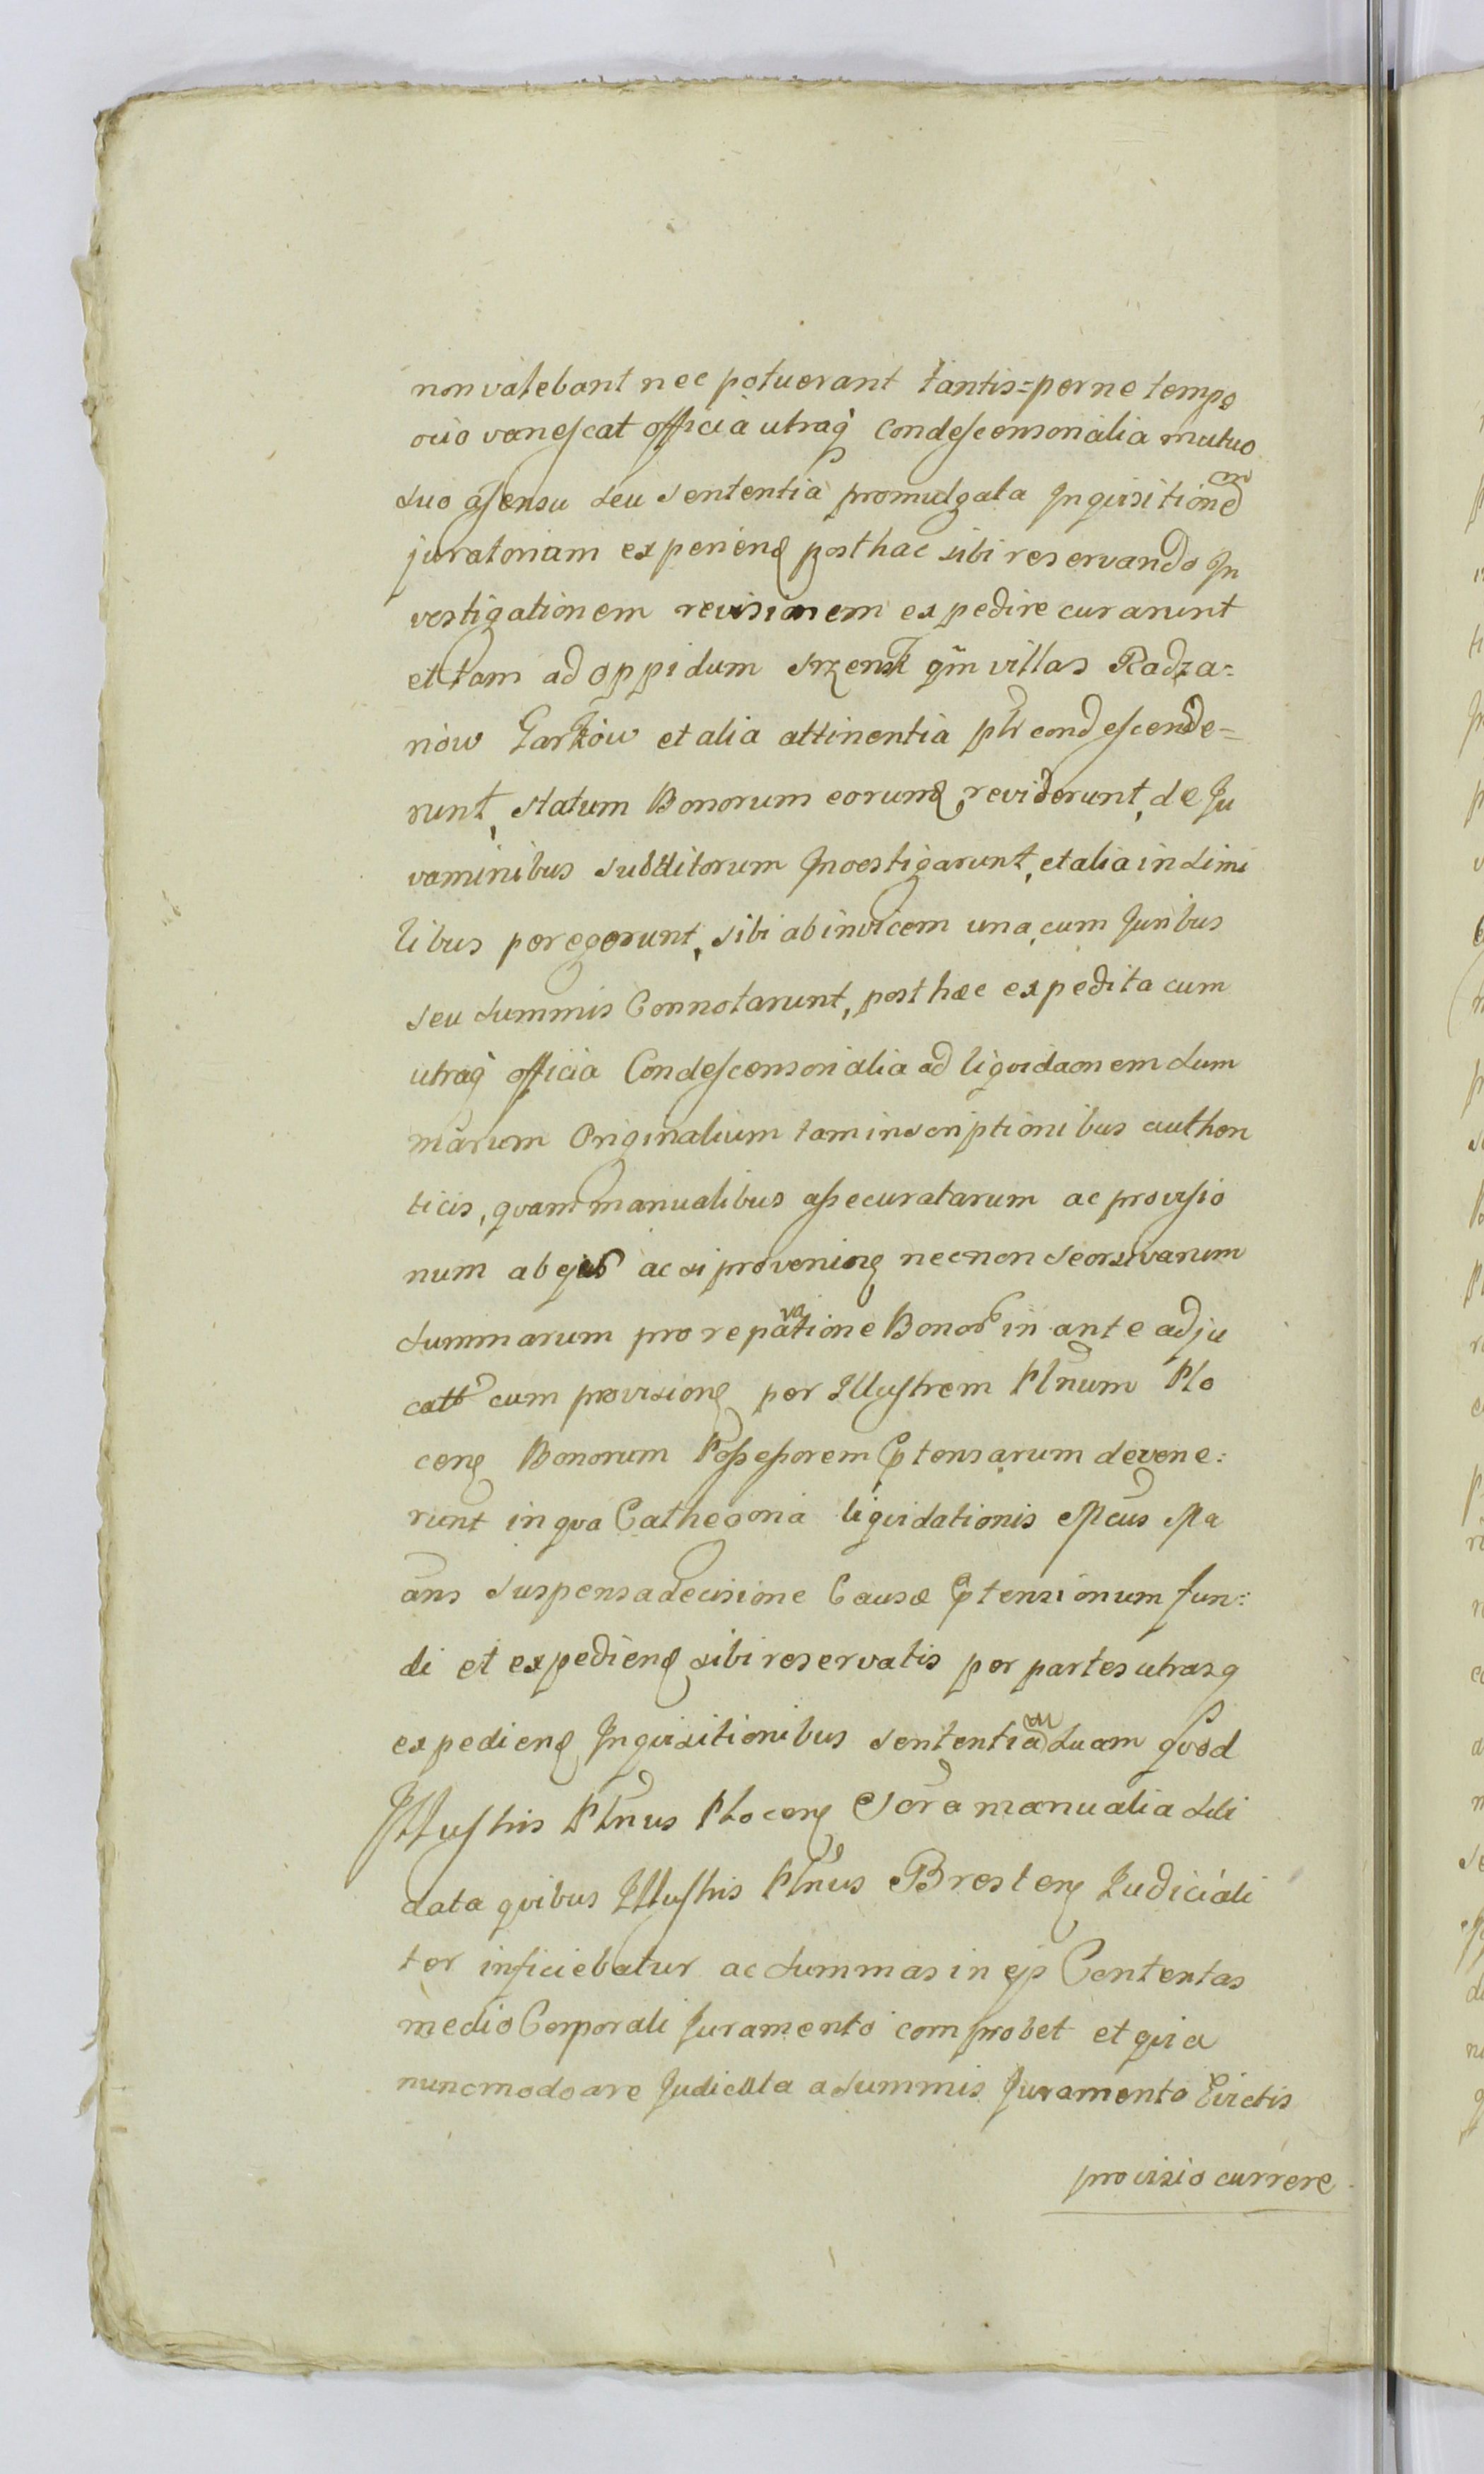 non valebant nec potuerant tantis=per ne tempe
ouo vanescat officia utraq condescensorialia mutuo
suo assensu seu sententia promulgata Inquisitionem
juratoriam experiend post hac sibi reservando In
vestigationem revisionem expedire curarunt
et tam ad oppidum Srzensk qm villas Radza=
now Garkow et alia attinentia plr condescende=
runt, statum Bonorum eorumd reviderunt, de Ju
vaminibus subditorum Investigarunt, et alia in simi
libus peregerunt, sibi ab invicem una cum Juribus
seu summis Connotarunt, post hæc expedita cum
utraq officia Condescensorialia ad liqvidaonem sum
marum Originalium tam inscriptionibus authen
ticis, qvam manualibus assecuratarum ac provisio
num ab ejus ac si provenien necnon seorsivarum
summarum pro reparatione Bonor in ante adju
catt cum provision per Illustrem Plnum Plo
cen Bonorum Possessorem Ptensarum devene:
runt in qva Cathegoria liqvidationis Mcus Ma
ans suspensa decisione Causæ Ptensionum fun:
di et expediend sibi reservatis per partes utrasq
expediend Inqvisitionibus sententiam suam qvod
Illustris Plnus Plocen Scra manualia sibi
data qvibus Illustris Plnus Bresten Judiciali
ter inficiebatur ac summas in ejs Contentas
medio Corporali Juramento comprobet et qvia
nunc modo a re Judicata a summis Juramento Evictis
provisio currere